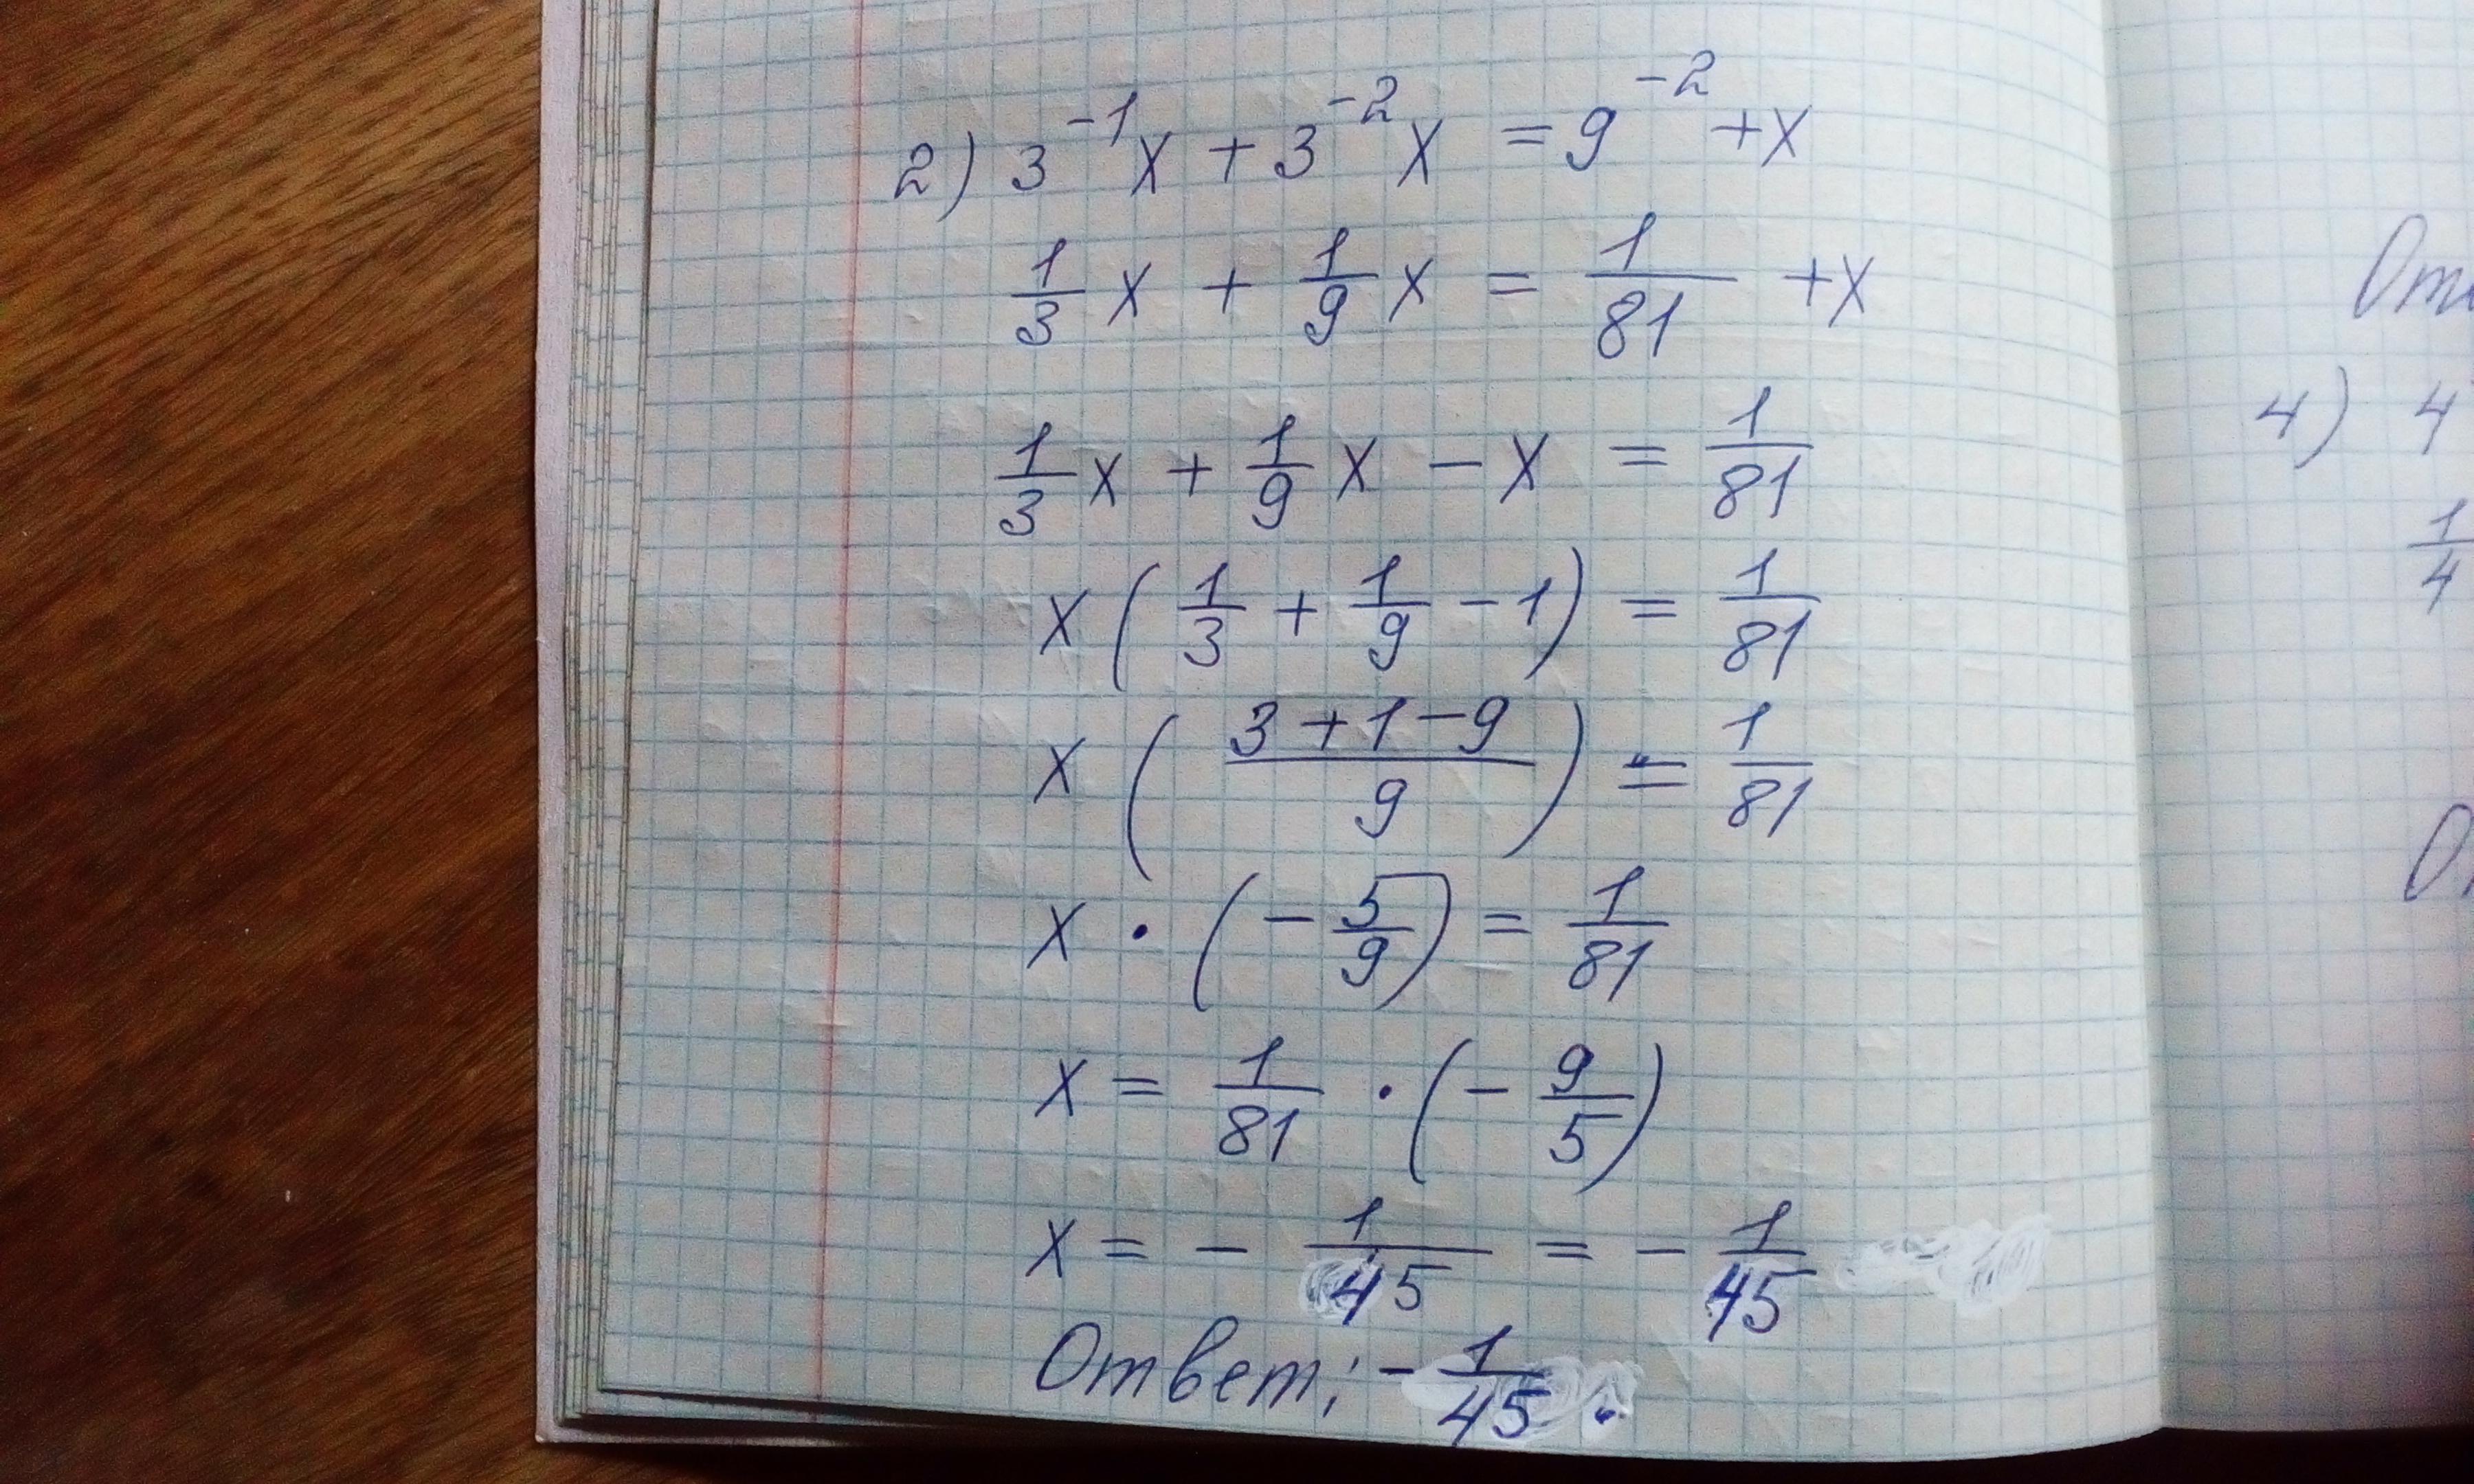 2) 3⁻¹x + 3⁻²x = 9⁻² + x
1/3 x + 1/9 x = 1/81 + x
1/3 x + 1/9 x - x = 1/81
x (1/3 + 1/9 - 1) = 1/81
x ((3 + 1 - 9)/9) = 1/81
x · (- 5/9) = 1/81
x = 1/81 · (- 9/5)
x = - 1/45 = - 1/45
Ответ: - 1/45.
4) 4
1/4